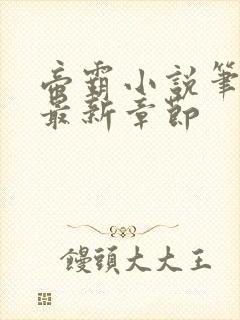 帝霸小說筆
最新章節
饅頭大大王